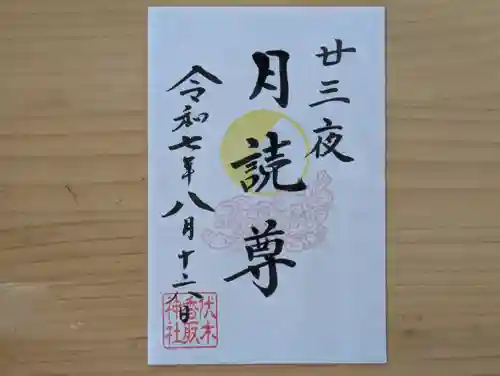 廿三夜
月読尊
令和七年八月十六日
伏木
香取
神社